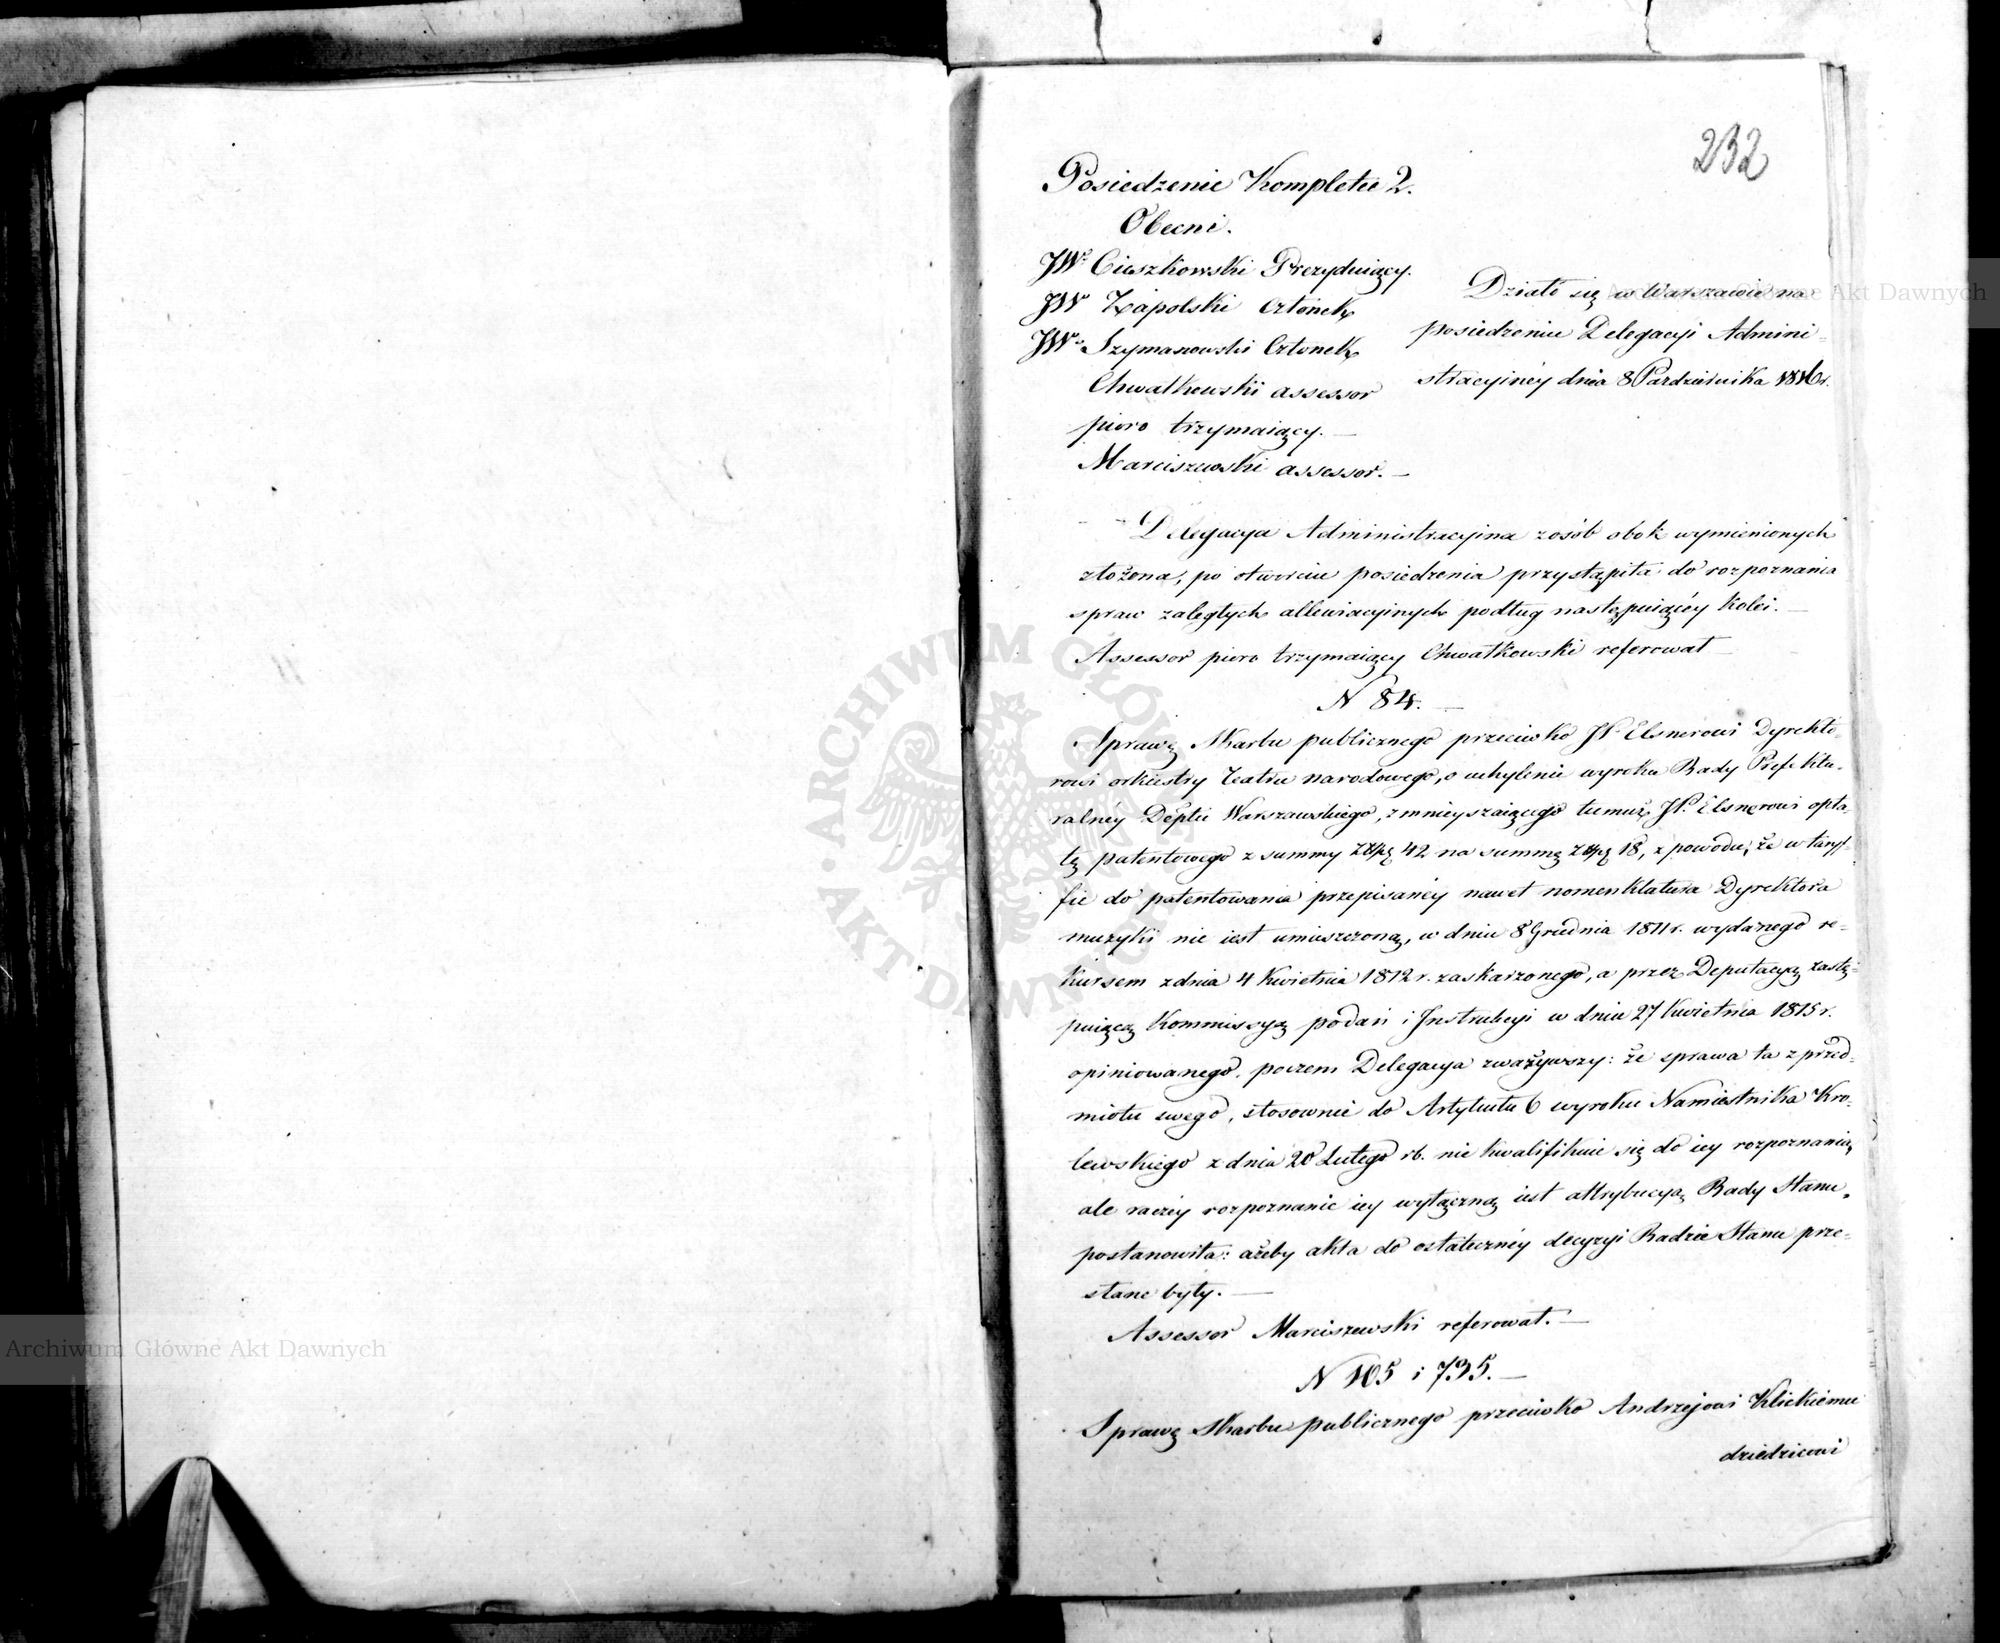 232
Posiedzenie Kompletu 2.
Obecni.
JW. Cieszkowski Prezyduiący.
JW Zapolski Członek
JW. Szymanowski Członek
Chwałkowski assessor
pioro trzymaiący. —
Marciszewski assessor. —
Działo się w Warszawie na
posiedzeniu Delegacyi Admini-
stracyinéy dnia 8 Pazdziernika 1816 r.
Delegacya Administracyina z osób obok wymienionych
złożona, po otwarciu posiedzenia przystąpiła do rozpoznania
spraw zaległych allewiacyinych podług następuiącéy kolei. —
Assessor pioro trzymaiący Chwałkowski referował —
N 84. —
Sprawę Skarbu publicznego przeciwko JP. Elsnerowi Dyrekto-
rowi orkiestry Teatru narodowego, o uchylenie wyroku Rady Prefektu-
ralnéy Deptu Warszawskiego, zmnieyszaiącego temuż JP. Elsnerowi opła-
tę patentowego z summy Złpl 42 na summę Złpl 18, z powodu, że w taryf-
fie do patentowania przepisanéy nawet nomenklatura Dyrektora
muzyki nie iest umieszczoną, w dniu 8 Grudnia 1811 r. wydanego re-
kursem z dnia 4 Kwietnia 1812 r. zaskarżonego, a przez Deputacyą zastę-
puiącą Kommissyą podań i Instrukcyi w dniu 27 Kwietnia 1815 r.
opiniowanego, poczem Delegacya zważywszy: że sprawa ta z przed-
miotu swego, stosownie do Artykułu 6 wyroku Namiestnika Kró-
lewskiego z dnia 20 Lutego rb. nie kwalifikuie się do iey rozpoznania,
ale raczéy rozpoznanie iey wyłączną iest attrybucyą Rady Stanu,
postanowiła: ażeby akta do ostatecznéy decyzyi Radzie Stanu prze-
słane były. —
Assessor Marciszewski referował. —
N 105 i 735. —
Sprawę Skarbu publicznego przeciwko Andrzejowi Klickiemu
dziedzicowi
Archiwum Główne Akt Dawnych
Archiwum Główne Akt Dawnych
ARCHIWUM GŁÓWNE AKT DAWNYCH